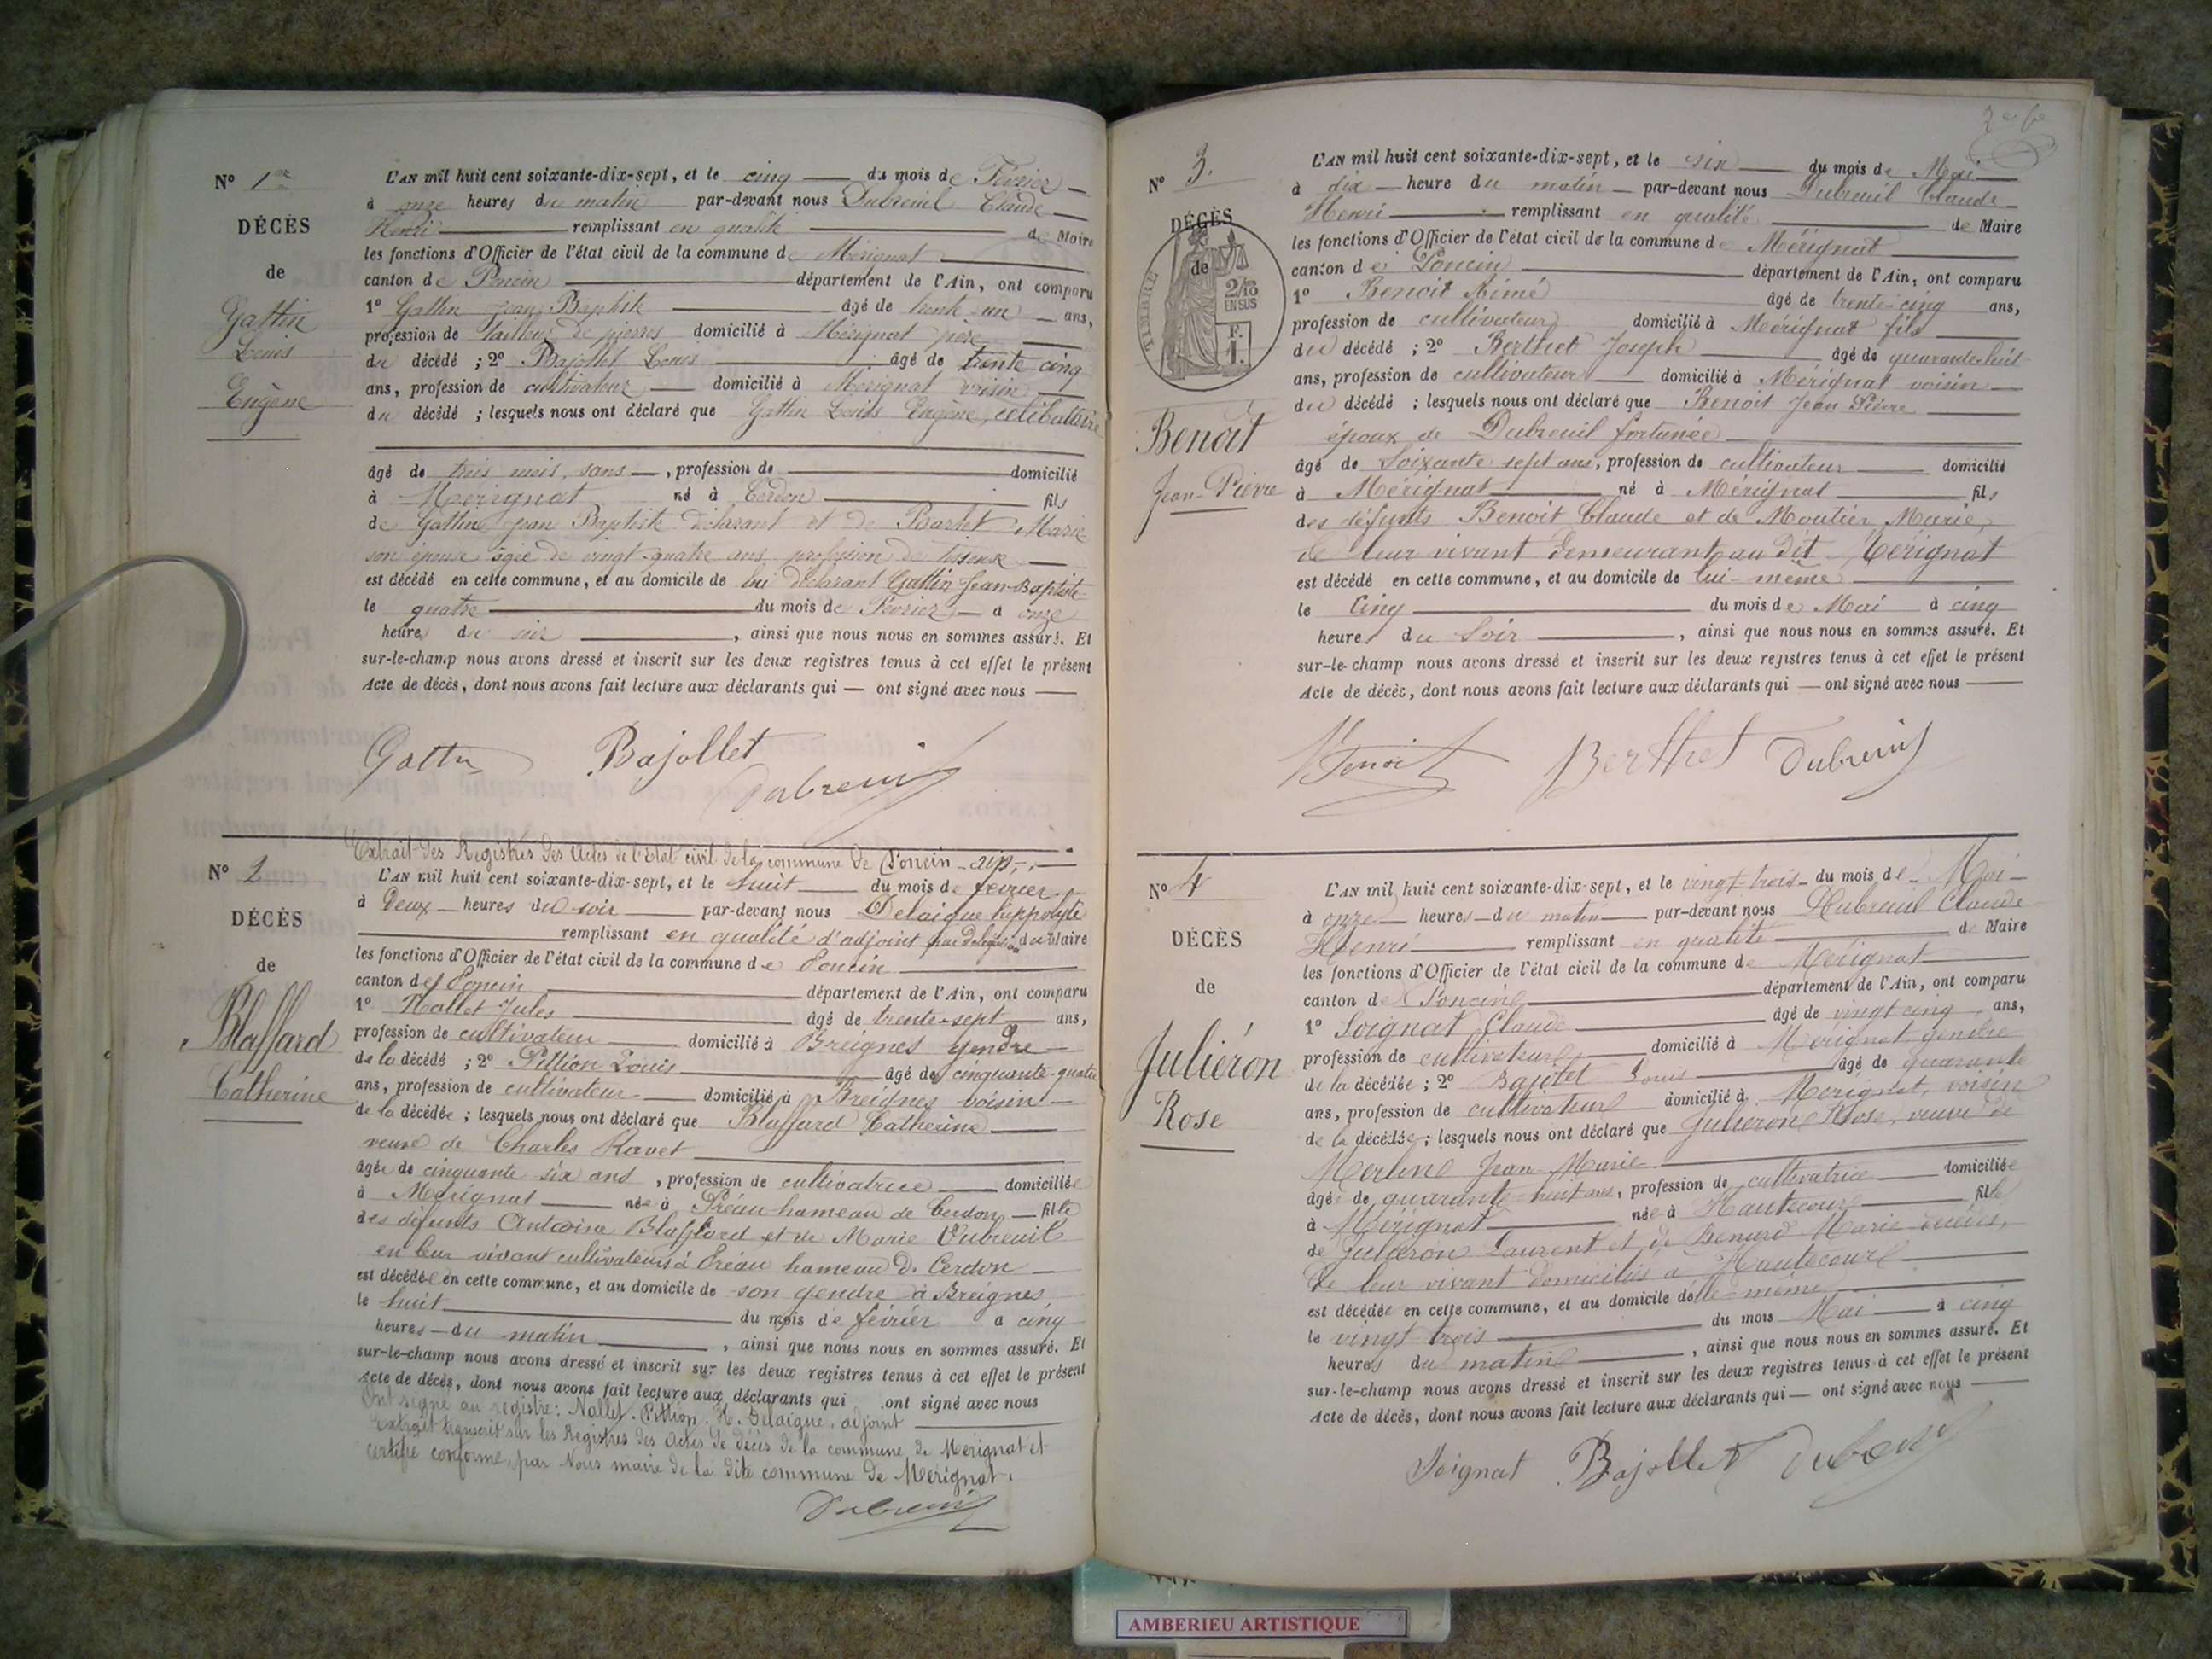 N° 1er
DÉCÈS
de
Gattin
Louis
Eugène
L'AN mil huit cent soixante-dix-sept, et le cinq du mois de Février
à onze heures du matin par-devant nous Dubreuil Claude
Henri remplissant en qualité de Maire
les fonctions d'Officier de l'état civil de la commune de Mérignat
canton de Poncin département de l'Ain, ont comparu
1° Gattin Jean Baptiste âgé de trente-un ans,
profession de tailleur de pierres domicilié à Mérignat père
du décédé ; 2° Bajollet Louis âgé de trente cinq
ans, profession de cultivateur domicilié à Mérignat voisin
du décédé ; lesquels nous ont déclaré que Gattin Louis Eugène, célibataire
âgé de trois mois, sans, profession de domicilié
à Mérignat né à Cerdon fils
de Gattin Jean Baptiste déclarant et de Barlet Marie
son épouse âgée de vingt-quatre ans profession de
est décédé en cette commune, et au domicile de lui déclarant Gattin Jean-Baptiste
le quatre du mois de Février à onze
heures du soir, ainsi que nous nous en sommes assuré. Et
sur-le-champ nous avons dressé et inscrit sur les deux registres tenus à cet effet le présent
Acte de décès, dont nous avons fait lecture aux déclarants qui — ont signé avec nous
Gattin Bajollet
Dubreuil
Extrait des Registres des Actes de l'Etat civil de la commune de Poncin
N° 2
DÉCÈS
de
Blaffard
Catherine
L'AN mil huit cent soixante-dix-sept, et le huit du mois de février
à deux heures du soir par-devant nous Delaigue hippolyte
remplissant en qualité d'adjoint par délégation du Maire
les fonctions d'Officier de l'état civil de la commune de Poncin
canton de Poncin département de l'Ain, ont comparu
1° Nallet Jules âgé de trente-sept ans,
profession de cultivateur domicilié à Breignes gendre
de la décédé ; 2° Pittion Louis âgé de cinquante-quatre
ans, profession de cultivateur domicilié à Breignes voisin
de la décédée ; lesquels nous ont déclaré que Blaffard Catherine
veuve de Charles Ravet
âgée de cinquante six ans, profession de cultivatrice domiciliée
à Mérignat née à Préau hameau de Cerdon fille
des défunts Antoine Blaffard et de Marie Dubreuil
en leur vivant cultivateurs à Préau hameau de Cerdon
est décédée en cette commune, et au domicile de son gendre à Breignes
le huit du mois de février à cinq
heures du matin, ainsi que nous nous en sommes assuré. Et
sur-le-champ nous avons dressé et inscrit sur les deux registres tenus à cet effet le présent
Acte de décès, dont nous avons fait lecture aux déclarants qui ont signé avec nous
Ont signé au registre : Nallet. Pittion. H. Delaigue, adjoint
Extrait transcrit sur les Registres des Actes de décès de la commune de Mérignat et
certifié conforme, par Nous maire de la dite commune de Mérignat.
Dubreuil
N° 3.
DÉCÈS
de
TIMBRE
2/10
EN SUS
F.
1.
Benoît
Jean-Pierre
L'AN mil huit cent soixante-dix-sept, et le six du mois de Mai
à dix heure du matin par-devant nous Dubreuil Claude
Henri remplissant en qualité de Maire
les fonctions d'Officier de l'état civil de la commune de Mérignat
canton de Poncin département de l'Ain, ont comparu
1° Benoit Aimé âgé de trente-cinq ans,
profession de cultivateur domicilié à Mérignat fils
du décédé ; 2° Berthet Joseph âgé de quarante huit
ans, profession de cultivateur domicilié à Mérignat voisin
du décédé ; lesquels nous ont déclaré que Benoit Jean Pierre
époux de Dubreuil fortunée
âgé de Soixante sept ans, profession de cultivateur domicilié
à Mérignat né à Mérignat fils
des défunts Benoit Claude et de Moutier Marie,
de leur vivant demeurant au dit Mérignat
est décédé en cette commune, et au domicile de lui-même
le Cinq du mois de Mai à cinq
heures du Soir, ainsi que nous nous en sommes assuré. Et
sur-le-champ nous avons dressé et inscrit sur les deux registres tenus à cet effet le présent
Acte de décès, dont nous avons fait lecture aux déclarants qui — ont signé avec nous
Benoit Berthet Dubreuil
N° 4
DÉCÈS
de
Juliéron
Rose
L'AN mil huit cent soixante-dix-sept, et le vingt-trois du mois de Mai
à onze heures du matin par-devant nous Dubreuil Claude
Henri remplissant en qualité de Maire
les fonctions d'Officier de l'état civil de la commune de Mérignat
canton de Poncin département de l'Ain, ont comparu
1° Soignat Claude âgé de vingt cinq ans,
profession de cultivateur domicilié à Mérignat gendre
de la décédée ; 2° Bajolet Louis âgé de quarante
ans, profession de cultivateur domicilié à Mérignat, voisin
de la décédée ; lesquels nous ont déclaré que Julieron Rose, veuve de
Merlin Jean-Marie
âgée de quarante-huit ans, profession de cultivatrice domiciliée
à Mérignat née à Hautecour fille
de Julieron Laurent et de Benard Marie
de leur vivant domiciliés à Hautecour
est décédée en cette commune, et au domicile d'elle-même
le vingt trois du mois Mai à cinq
heures du matin, ainsi que nous nous en sommes assuré. Et
sur-le-champ nous avons dressé et inscrit sur les deux registres tenus à cet effet le présent
Acte de décès, dont nous avons fait lecture aux déclarants qui — ont signé avec nous
Soignat Bajollet Dubreuil
AMBERIEU ARTISTIQUE